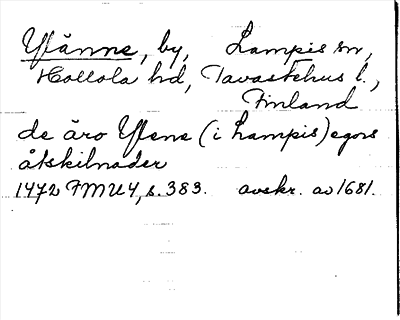 Yfänne, by, Lampis sn,
Hollola hd, Tavastehus l.,
Finland
de äro Yfene (i Lampis) egors
åtskilnader
1472 FMU 4, s. 383. avskr. av 1681.